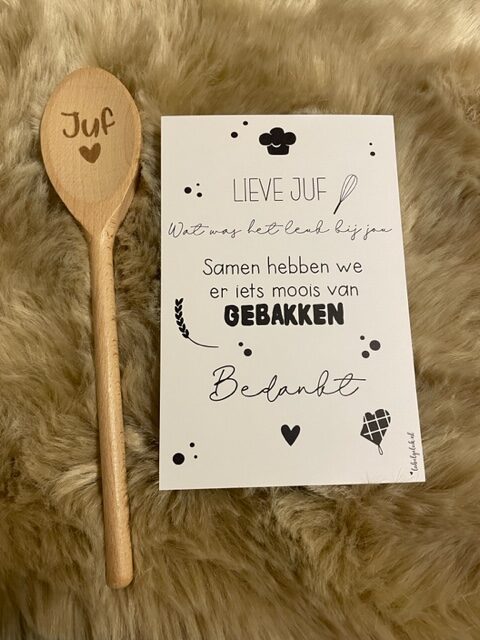 Juf
LIEVE JUF
Wat was het leuk bij jou
Samen hebben we
er iets moois van
GEBAKKEN
Bedankt
labelgeluk.nl